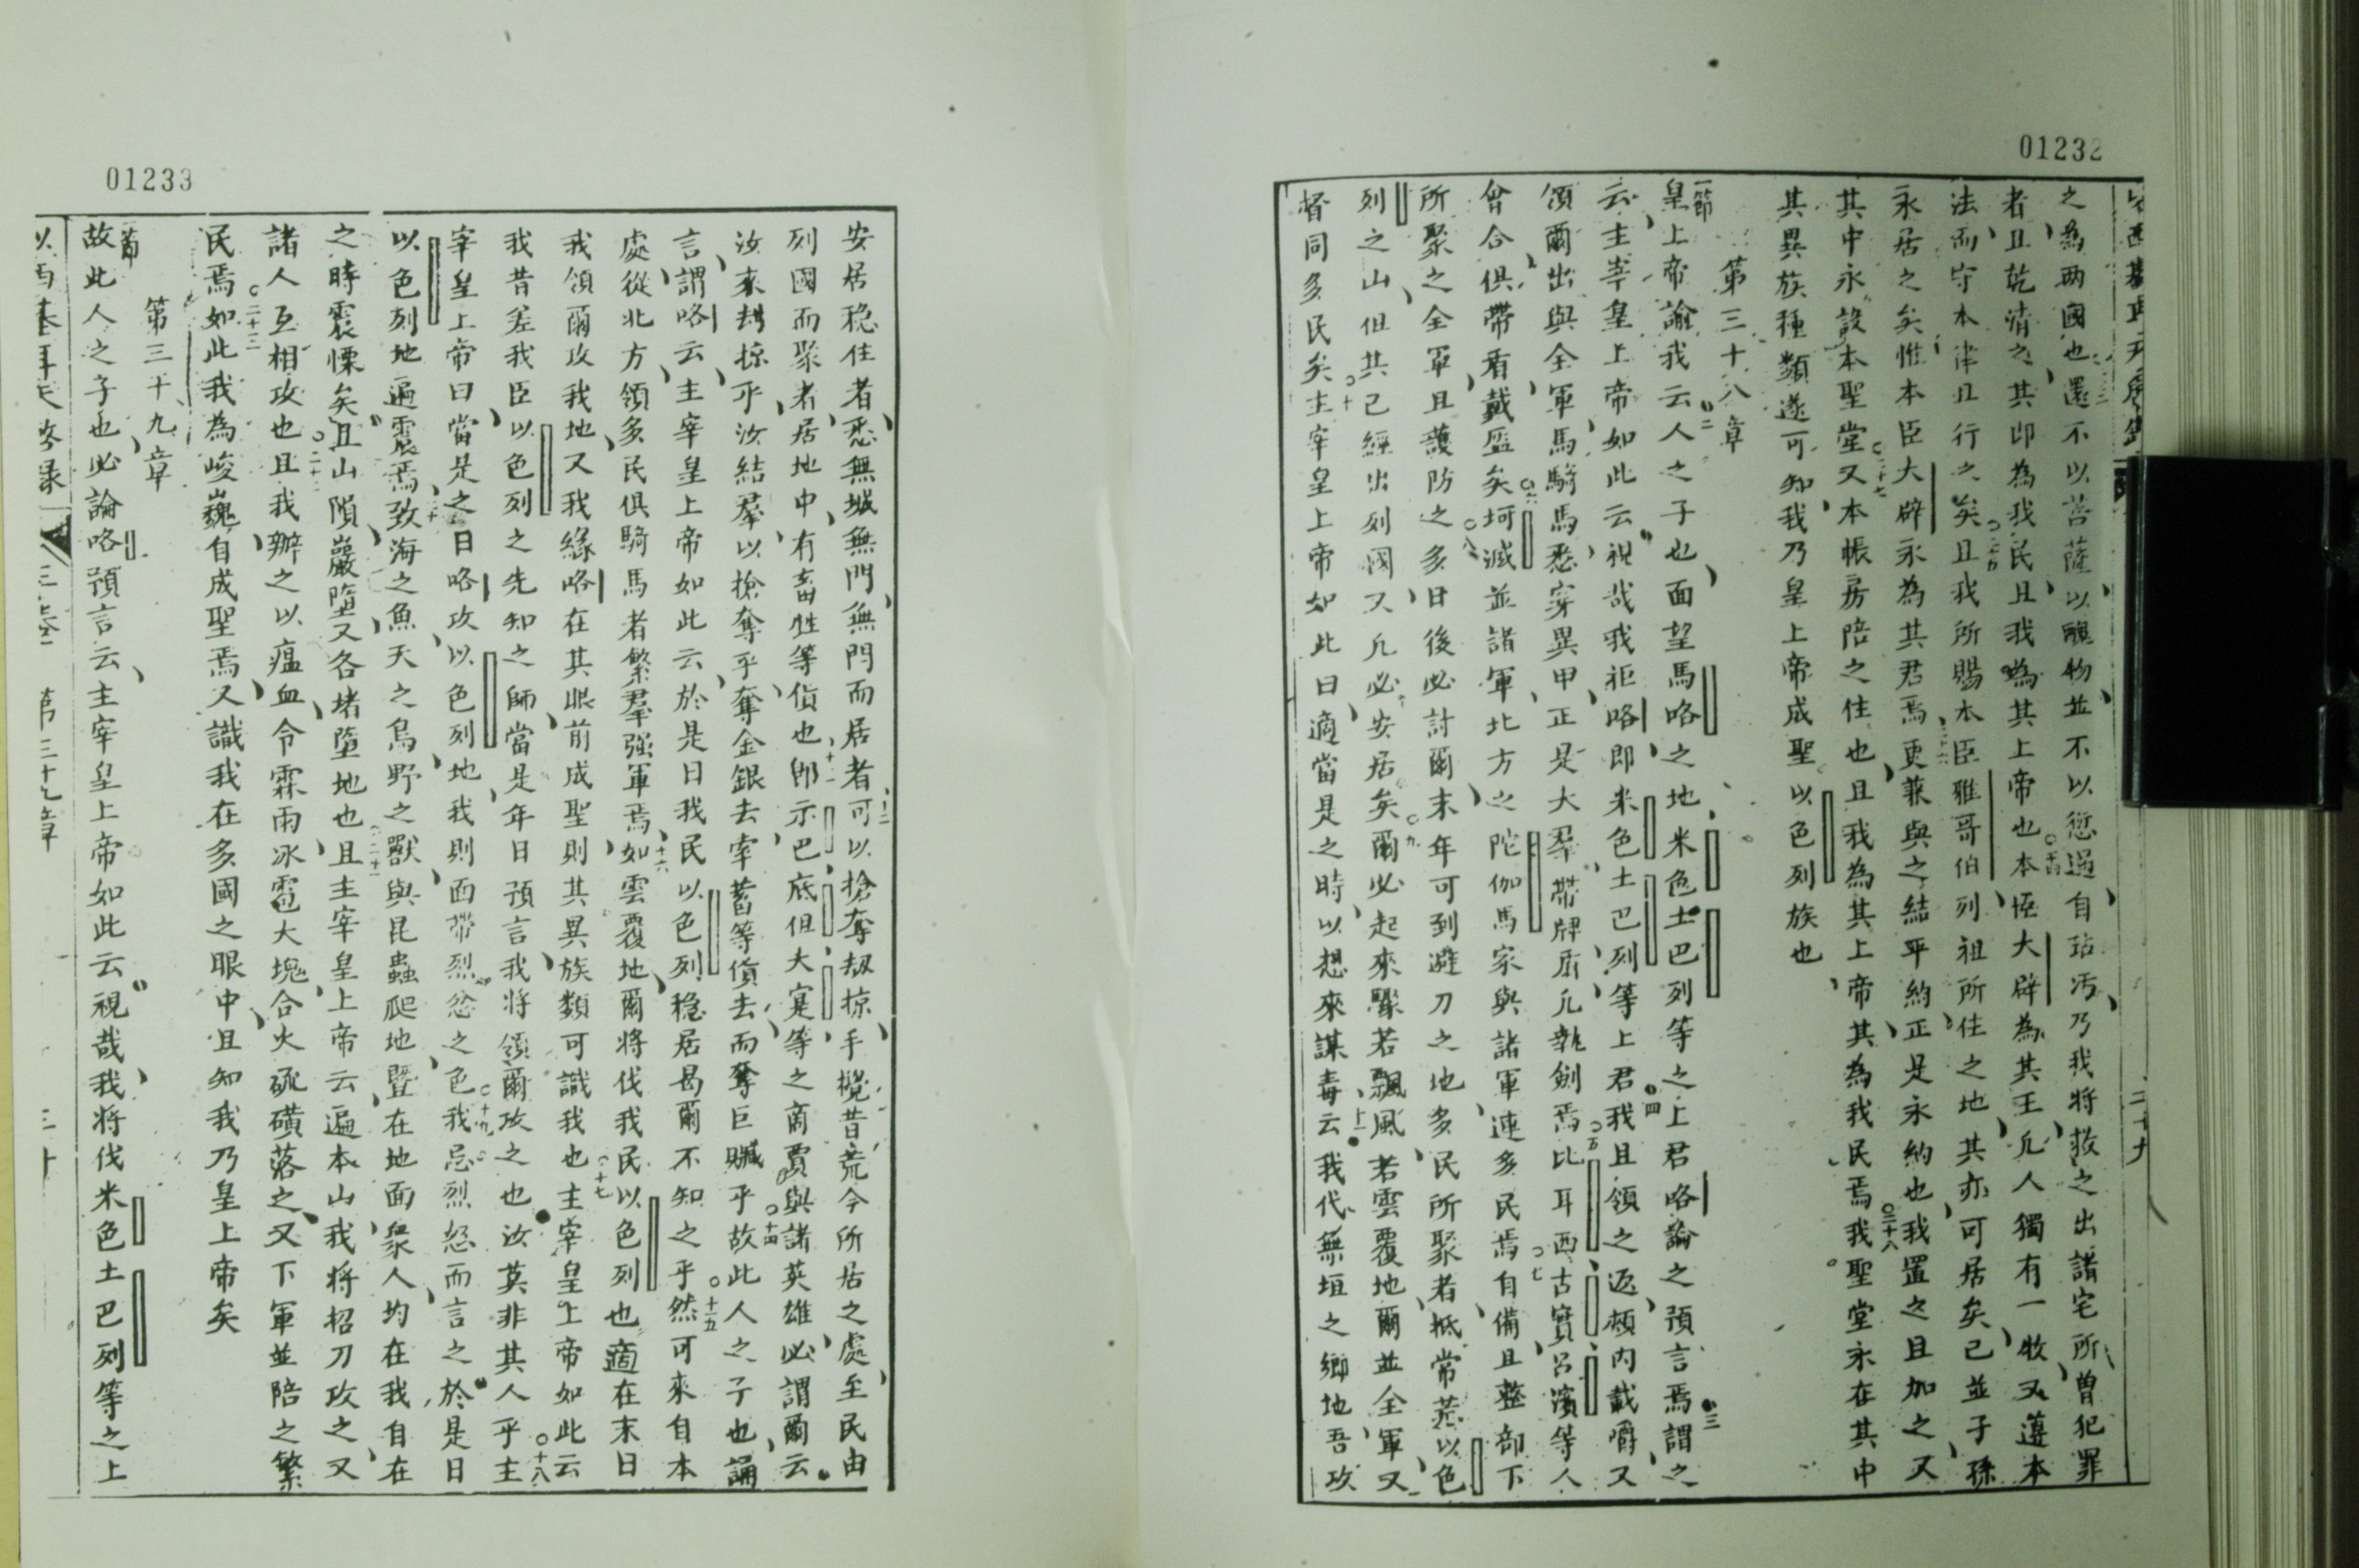 01232
之為两國也還不以菩薩以醜物並不以愆過自玷汚乃我将救之出諸宅所曾犯罪
者且乾清之其即為我民且我為其上帝也本恆大辟為其王凢人獨有一牧又遵本
法而守本律且行之矣且我所賜本臣雅哥伯列祖所住之地其亦可居矣己並子孫
永居之矣惟本臣大辟永為其君焉更兼與之結平約正是永約也我置之且加之又
其中永設本聖堂又本帳房陪之住也且我為其上帝其為我民焉我聖堂永在其中
其異族種類遂可知我乃皇上帝成聖以色列族也
第三十八章
皇上帝諭我云人之子也面望馬咯之地米色土巴列等之上君咯論之預言焉謂之
云主宰皇上帝如此云視哉我拒咯即米色土巴列等上君我且領之返頰内載嚼又
領爾出與全軍馬騎馬悉穿異甲正是大羣帶牌盾凢執劍焉比耳西古實呂濱等人
會合俱帶看戴盔矣坷滅並諸軍北方之陀伽馬家與諸軍連多民焉自備且整部下
所聚之全軍且護防之多日後必討爾末年可到避刀之地多民所聚者抵常荒以色
列之山但其已經出列國又凢必安居矣爾必起來驟若飄風若雲覆地爾並全軍又
督同多民矣主宰皇上帝如此曰適當是之時以想來謀毒云我代無垣之鄉地吾攻
二十九
01233
安居穏住者悉無城無門無閂而居者可以搶奪刼掠手攪昔荒今所居之處至民由
列國而聚者居地中有畜牲等貨也即示巴底但大寔等之商賈與諸英雄必謂爾云
汝來刼掠乎汝結羣以搶奪乎奪金銀去牽蓄等貨去而奪巨贓乎故此人之子也誦
言謂咯云主宰皇上帝如此云於是日我民以色列穏居曷爾不知之乎然可來自本
處從北方領多民俱騎馬者繁羣强軍焉如雲覆地爾将伐我民以色列也適在末日
我領爾攻我地又我緣咯在其眼前成聖則其異族類可識我也主宰皇上帝如此云
我昔差我臣以色列之先知之師當是年日預言我将領爾攻之也汝莫非其人乎主
宰皇上帝曰當是之日咯攻以色列地我則面帶烈忿之色我忌烈怒而言之於是日
以色列地遍震焉致海之魚天之鳥野之獸與昆蟲爬地暨在地面衆人均在我自在
之時震慄矣且山隕巖墮又各堵墮地也且主宰皇上帝云遍本山我将招刀攻之又
諸人互相攻也且我辦之以瘟血令霖雨冰雹大塊合火硫磺落之又下軍並陪之繁
民焉如此我為峻巍自成聖焉又識我在多國之眼中且知我乃皇上帝矣
第三十九章
故此人之子也必論咯預言云主宰皇上帝如此云視哉我将伐米色土巴列等之上
第三十九章
三十